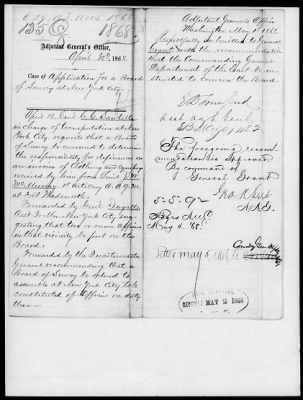 135 Q 1868
Adjutant General's Office,
April 30, 1868.
Case of Application for a Board
of Survey at New York City.
April 18,
in charge of transportation at New
York City requests that a Board
of Survey be convened to determine
the responsibility for deficiencies on
an invoice of Camp equipage
received by him from Lieut.
McGilvray, 1st Artillery A.A.Q.M.
at Fort Wadsworth.
Forwarded by Genl. Ingalls
New York City sug-
gesting that two or more officers
on that vicinity be put on the
Board.
Forwarded by the Quartermaster
General recommending that a
Board of Survey be ordered to
assemble at New York City to be
constituted of officers on duty
there
Adjutant General's Office
Washington May 1st 1868.
Respectfully submitted to General
Grant with the recommendation
that the Commanding General
Department of the East be in-
structed to convene the Board.
E D Townsend
Asst Adjt Genl
The foregoing recom-
mendation is approved
By command of
General Grant
A.A.G.
May 4, '68.
Comdg Gen
Letter May 5, 1868
MAY 2 1868